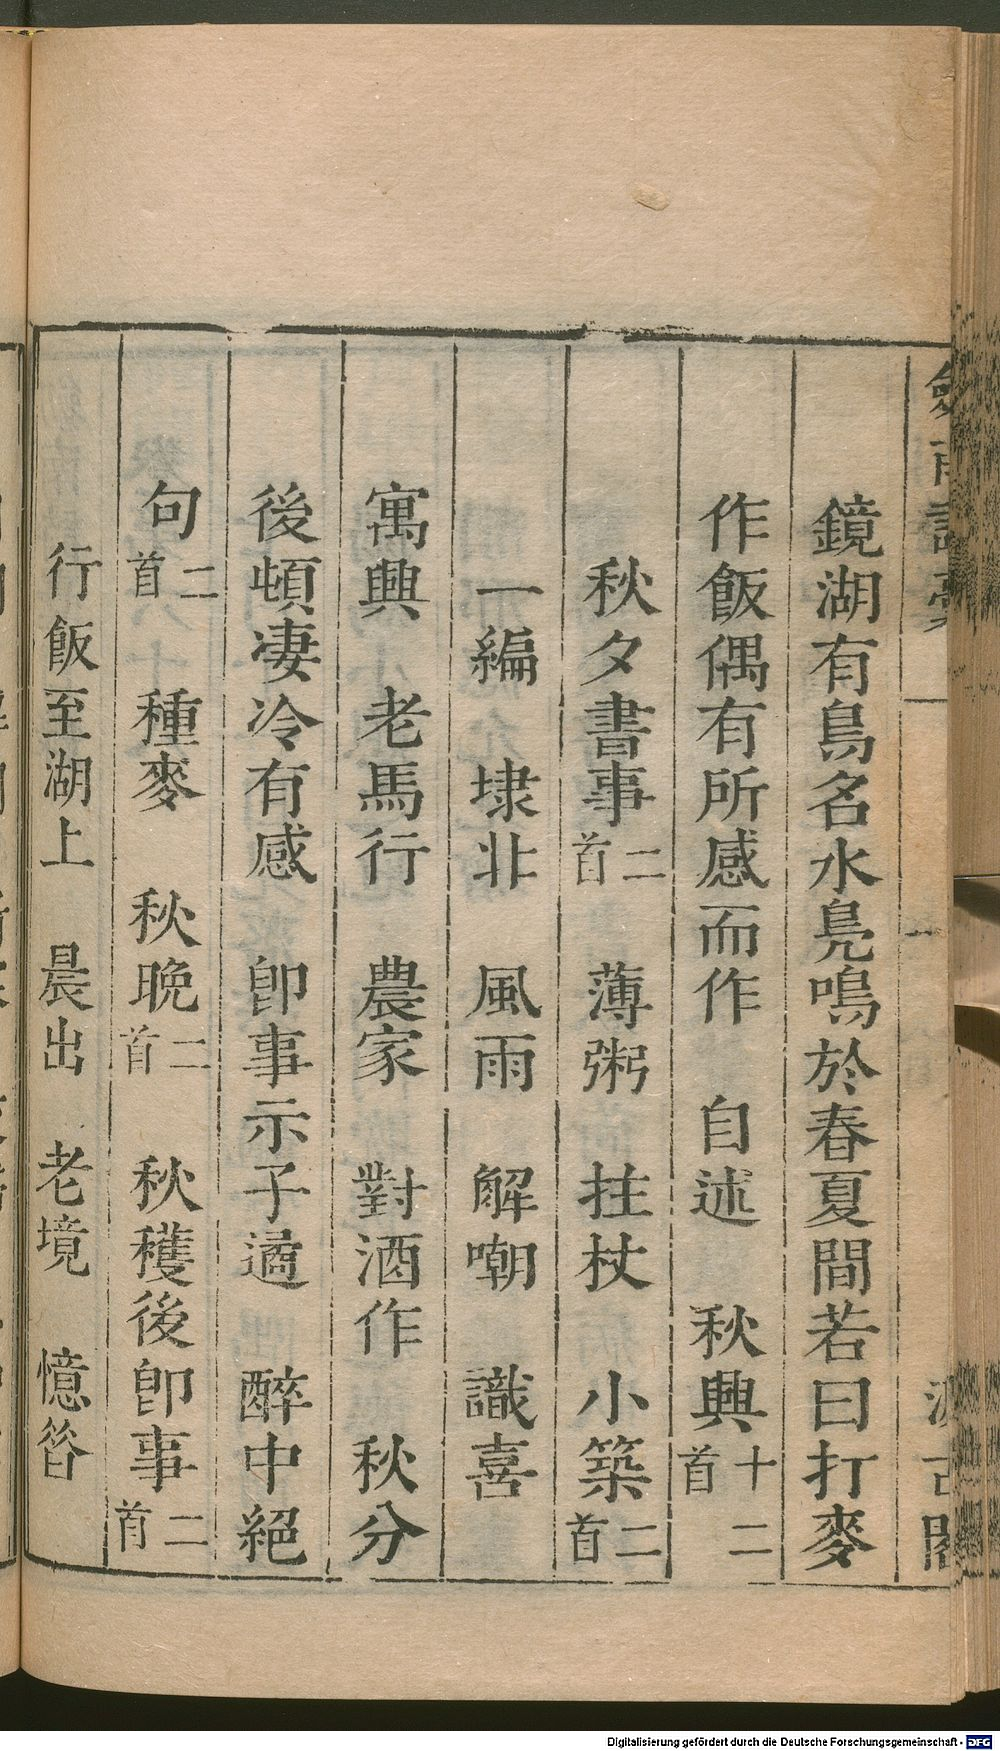 鏡湖有鳥名水鳧鳴於春夏間若曰打麥
作飯偶有所感而作 自述 秋興十二首
秋夕書事二首 薄粥 拄杖 小築二首
一編 埭北 風雨 解嘲 識喜
寓興 老馬行 農家 對酒作 秋分
後頓凄冷有感 卽事示子遹 醉中絕
句二首 種麥 秋晚二首 秋穫後卽事二首
行飯至湖上 晨出 老境 憶昝
Digitalisierung gefördert durch die Deutsche Forschungsgemeinschaft - DFG